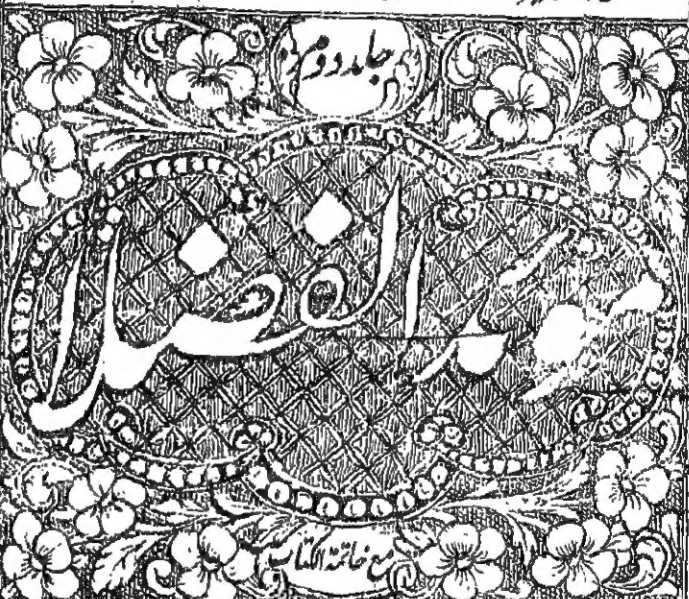 جلد دوم
مؤید الفضلا
مع خاتمة الکتاب